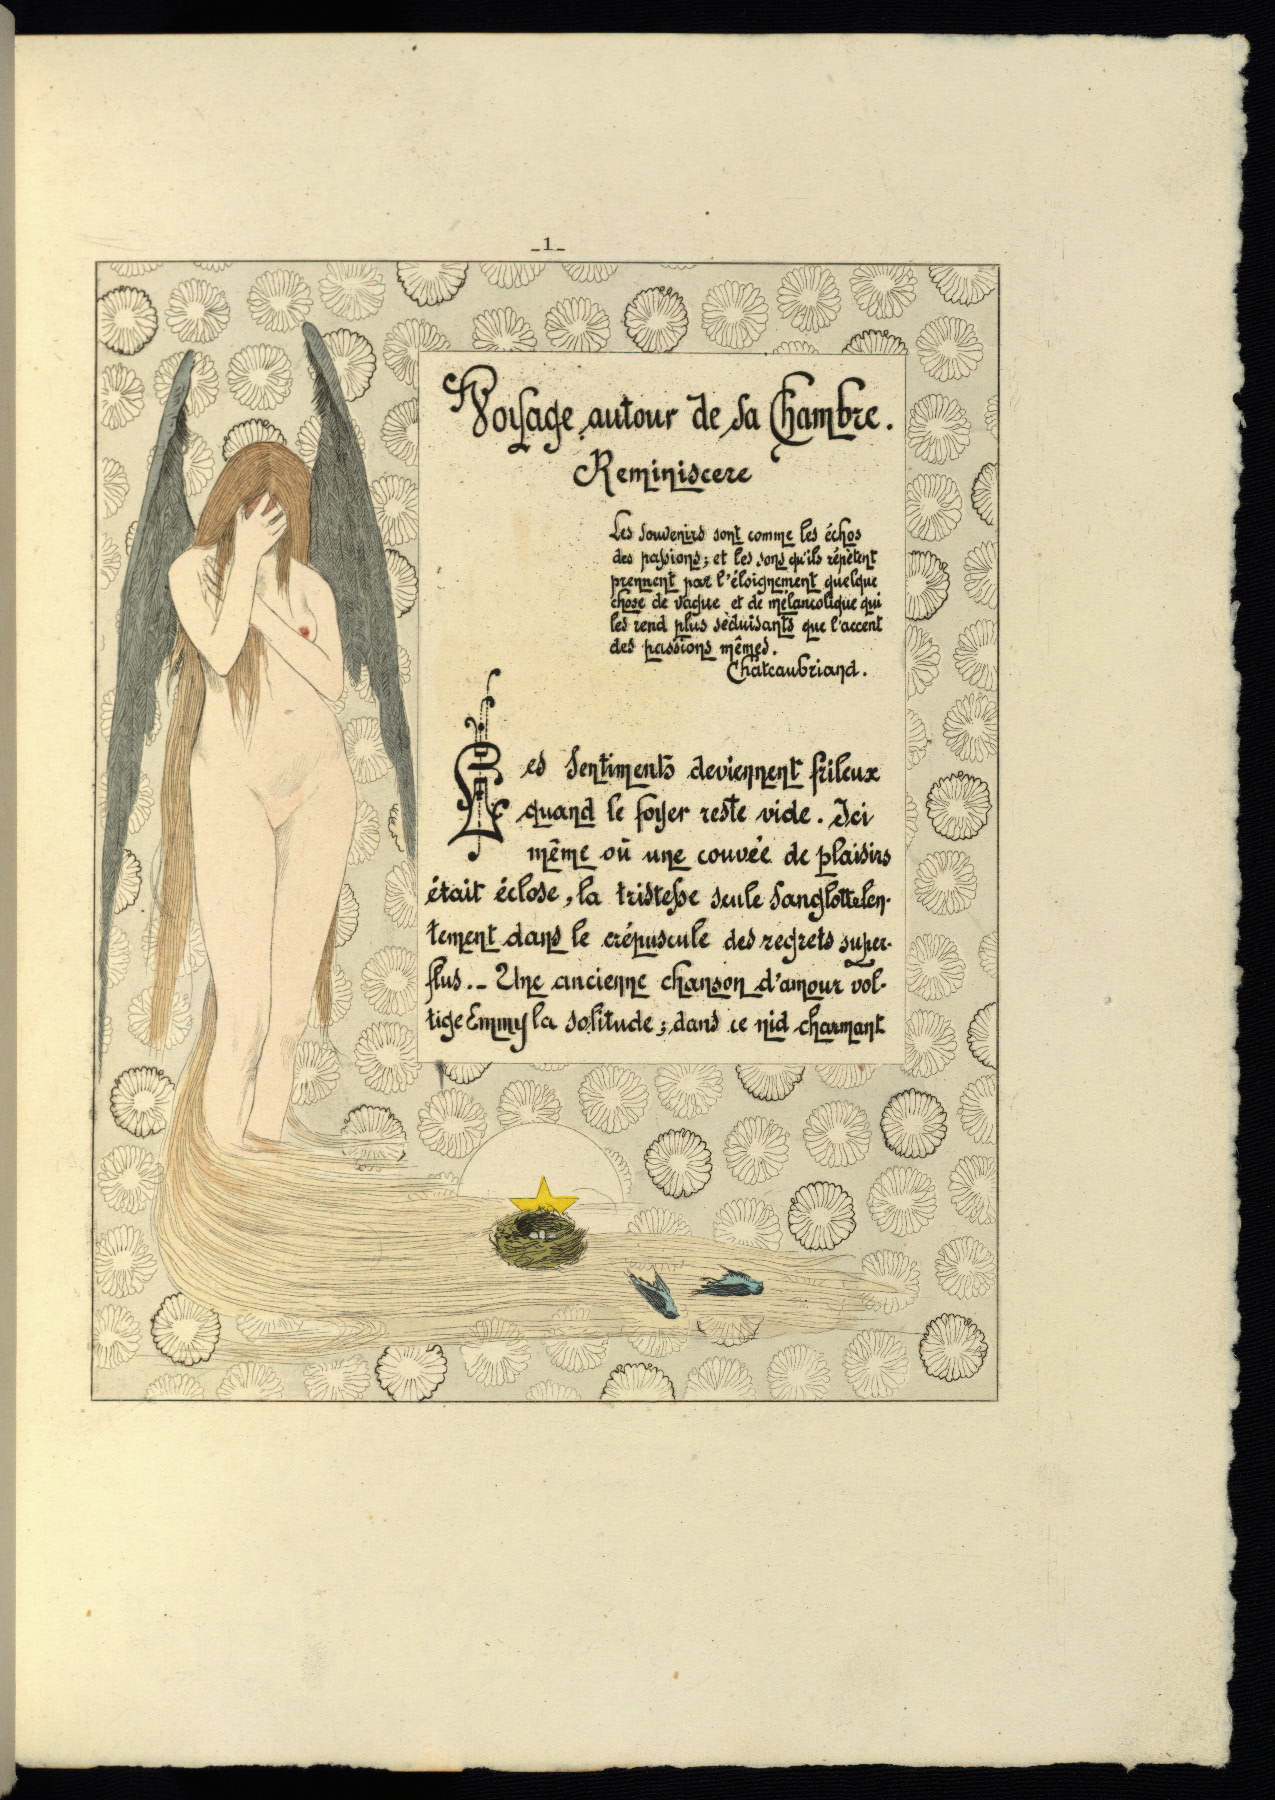 _1_
Voyage autour de sa Chambre.
Reminiscere
Les souvenirs sont comme les échos
des passions ; et les sons qu'ils répètent
prennent par l'éloignement quelque
chose de vague et de mélancolique qui
les rend plus séduisants que l'accent
des passions mêmes.
Châteaubriand.
Les sentiments deviennent frileux
quand le foyer reste vide. Ici
même où une couvée de plaisirs
était éclose, la tristesse seule sanglotte len-
tement dans le crépuscule des regrets super-
flus. _ Une ancienne chanson d'amour vol-
tige Emmy la solitude ; dans ce nid charmant